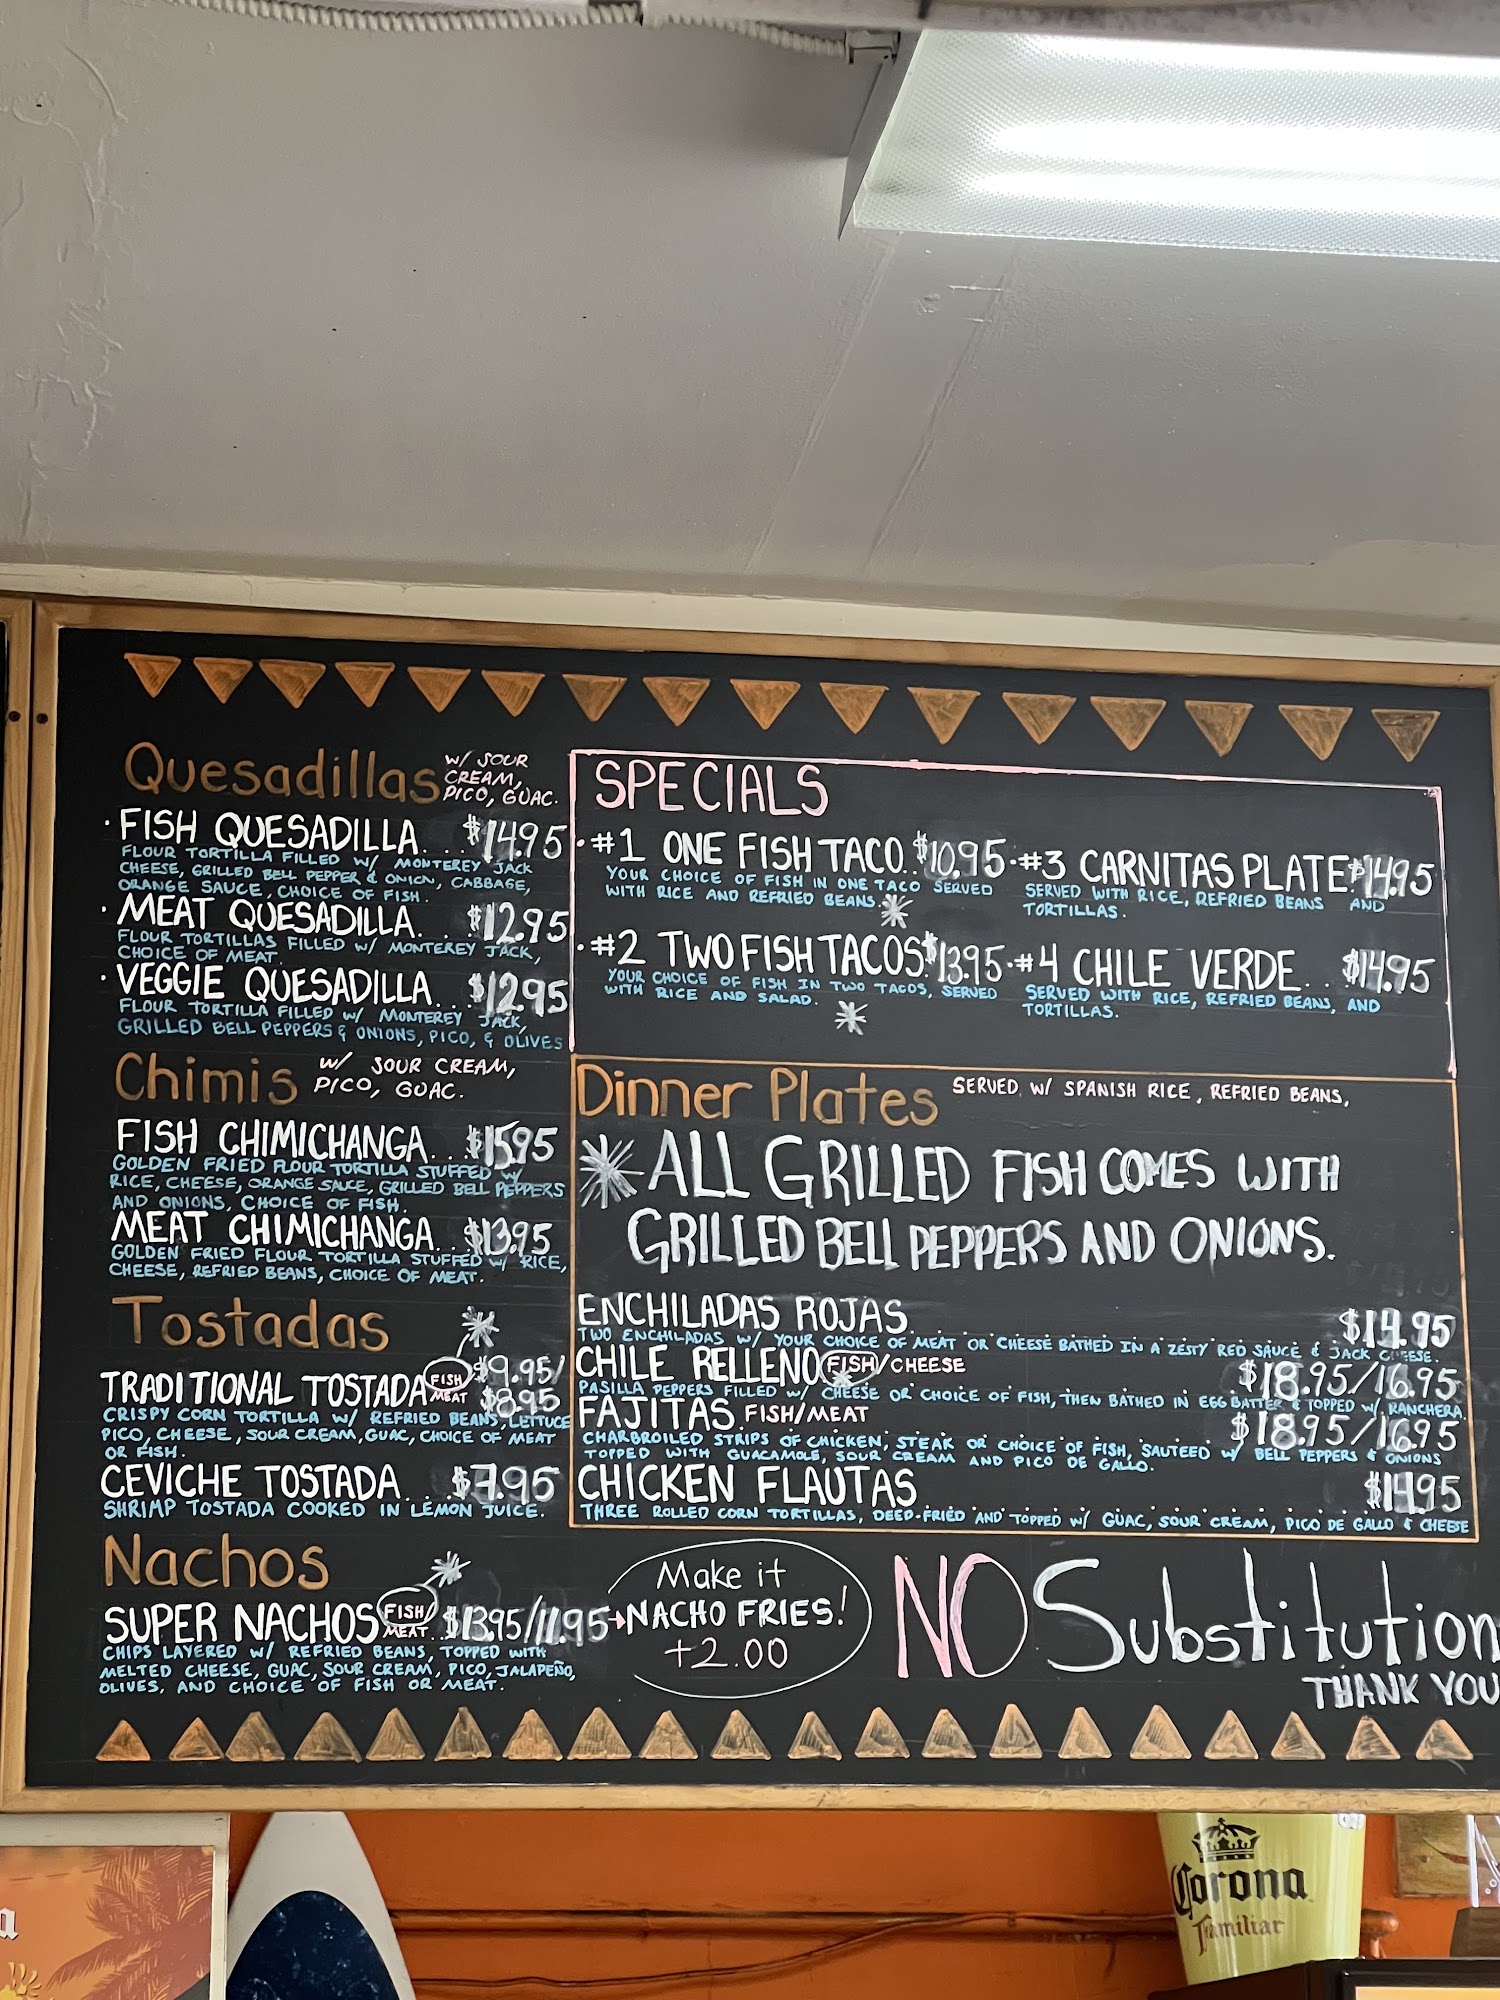 Quesadillas w/ SOUR
CREAM,
PICO, GUAC.
· FISH QUESADILLA. . . $14.95
FLOUR TORTILLA FILLED w/ MONTEREY JACK
CHEESE, GRILLED BELL PEPPER & ONION, CABBAGE,
ORANGE SAUCE, CHOICE OF FISH.
· MEAT QUESADILLA. . . $12.95
FLOUR TORTILLAS FILLED w/ MONTEREY JACK,
CHOICE OF MEAT.
· VEGGIE QUESADILLA. . . $12.95
FLOUR TORTILLA FILLED w/ MONTEREY JACK,
GRILLED BELL PEPPERS & ONIONS, PICO, & OLIVES
Chimis w/ SOUR CREAM,
PICO, GUAC.
FISH CHIMICHANGA. . . $15.95
GOLDEN FRIED FLOUR TORTILLA STUFFED w/
RICE, CHEESE, ORANGE SAUCE, GRILLED BELL PEPPERS
AND ONIONS, CHOICE OF FISH.
MEAT CHIMICHANGA. . . $13.95
GOLDEN FRIED FLOUR TORTILLA STUFFED w/ RICE,
CHEESE, REFRIED BEANS, CHOICE OF MEAT.
Tostadas
TRADITIONAL TOSTADA FISH/MEAT $9.95/
$8.95
CRISPY CORN TORTILLA w/ REFRIED BEANS, LETTUCE
PICO, CHEESE, SOUR CREAM, GUAC, CHOICE OF MEAT
OR FISH.
CEVICHE TOSTADA. . . $7.95
SHRIMP TOSTADA COOKED IN LEMON JUICE.
Nachos
SUPER NACHOS FISH/MEAT.. $13.95/11.95
CHIPS LAYERED w/ REFRIED BEANS, TOPPED WITH
MELTED CHEESE, GUAC, SOUR CREAM, PICO, JALAPEÑO,
OLIVES, AND CHOICE OF FISH OR MEAT.
Make it
NACHO FRIES!
+2.00
SPECIALS
· #1 ONE FISH TACO. $10.95
YOUR CHOICE OF FISH IN ONE TACO SERVED
WITH RICE AND REFRIED BEANS.
· #2 TWO FISH TACOS $13.95
YOUR CHOICE OF FISH IN TWO TACOS, SERVED
WITH RICE AND SALAD.
· #3 CARNITAS PLATE $14.95
SERVED WITH RICE, REFRIED BEANS AND
TORTILLAS.
· #4 CHILE VERDE. . . $14.95
SERVED WITH RICE, REFRIED BEANS, AND
TORTILLAS.
Dinner Plates SERVED w/ SPANISH RICE, REFRIED BEANS,
* ALL GRILLED FISH COMES WITH
GRILLED BELL PEPPERS AND ONIONS.
ENCHILADAS ROJAS $14.95
TWO ENCHILADAS w/ YOUR CHOICE OF MEAT OR CHEESE BATHED IN A ZESTY RED SAUCE & JACK CHEESE.
CHILE RELLENO FISH/CHEESE $18.95/16.95
PASILLA PEPPERS FILLED w/ CHEESE OR CHOICE OF FISH, THEN BATHED IN EGG BATTER & TOPPED w/ RANCHERA.
FAJITAS FISH/MEAT $18.95/16.95
CHARBROILED STRIPS OF CHICKEN, STEAK OR CHOICE OF FISH, SAUTEED w/ BELL PEPPERS & ONIONS
TOPPED WITH GUACAMOLE, SOUR CREAM AND PICO DE GALLO.
CHICKEN FLAUTAS $14.95
THREE ROLLED CORN TORTILLAS, DEEP-FRIED AND TOPPED w/ GUAC, SOUR CREAM, PICO DE GALLO & CHEESE
NO Substitution
THANK YOU
Corona
Familiar
a